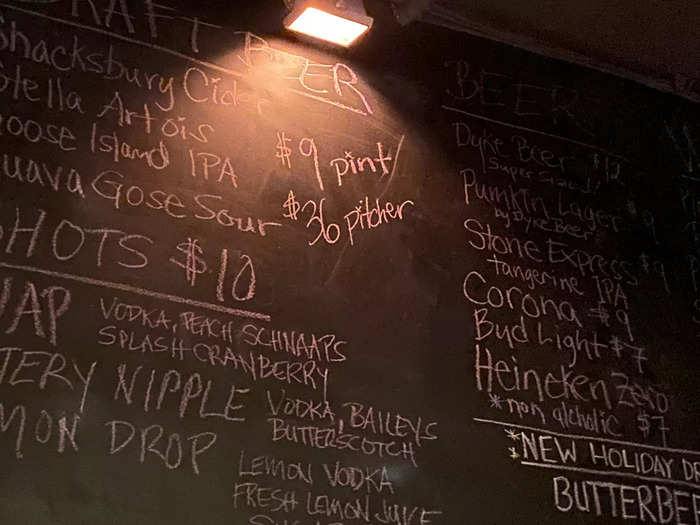 RAFT BEER
Shacksbury Cider
Stella Artois
oose Island IPA
uava Gose Sour
$9 pint/
$36 pitcher
HOTS $10
NAP VODKA, PEACH SCHNAAPS
SPLASH CRANBERRY
TERY NIPPLE VODKA, BAILEYS
BUTTERSCOTCH
MON DROP
LEMON VODKA
FRESH LEMON JUICE
BEER
Dyke Beer $12
Pumkin Lager $9
by Dyke Beer
Stone Express $9
tangerine IPA
Corona $9
Bud Light $7
Heineken Zero
*non alcholic $7
*NEW HOLIDAY DR
BUTTERBE